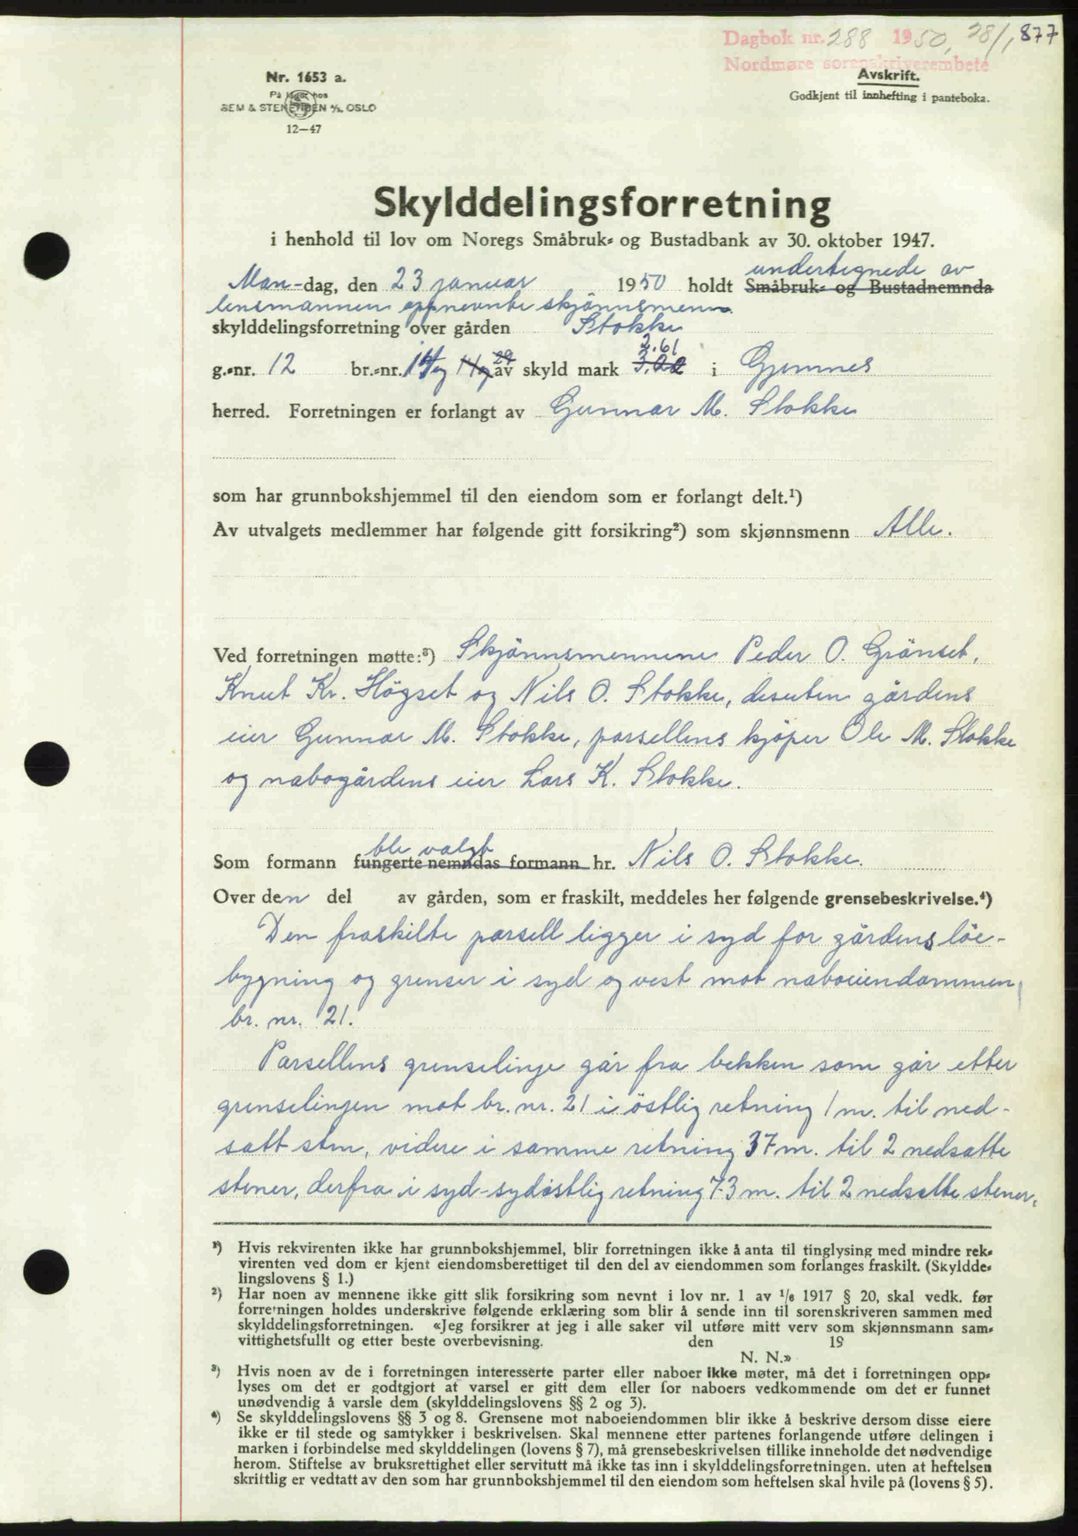 Dagbok nr. 288 1950, 28/1, 877
Nordmøre sorenskriverembete
Nr. 1653 a.
På lager hos
SEM & STENERSEN A/S, OSLO
12—47
Avskrift.
Godkjent til innhefting i panteboka.
Skylddelingsforretning
i henhold til lov om Noregs Småbruk- og Bustadbank av 30. oktober 1947.
undertegnede av
Man-dag, den 23 januar 1950 holdt Småbruk- og Bustadnemnda
lensmannen oppnevnte skjönnsmenn
skylddelingsforretning over gården Stokke
2.61
g.-nr. 12 br.-nr. 14 og 29 av skyld mark 3.00 i Gjemnes
herred. Forretningen er forlangt av Gunnar M. Stokke
som har grunnbokshjemmel til den eiendom som er forlangt delt.¹)
Av utvalgets medlemmer har følgende gitt forsikring²) som skjønnsmenn Alle.
Ved forretningen møtte:³) Skjönnsmennene Peder O. Grönset,
Knut Kr. Högset og Nils O. Stokke, desuten gårdens
eier Gunnar M. Stokke, parsellens kjöper Ole M. Stokke
og nabogårdens eier Lars K. Stokke.
ble valgt
Som formann fungerte nemndas formann hr. Nils O. Stokke.
Over den del av gården, som er fraskilt, meddeles her følgende grensebeskrivelse.⁴)
Den fraskilte parsell ligger i syd for gårdens löe-
bygning og grenser i syd og vest mot naboeiendommen
br. nr. 21.
Parsellens grenselinje går fra bekken som går etter
grenselinjen mot br. nr. 21 i östlig retning 1 m. til ned-
satt sten, videre i samme retning 37 m. til 2 nedsatte
stener, derfra i syd-sydöstlig retning 73 m. til 2 nedsatte stener,
¹) Hvis rekvirenten ikke har grunnbokshjemmel, blir forretningen ikke å anta til tinglysing med mindre rek-
virenten ved dom er kjent eiendomsberettiget til den del av eiendommen som forlanges fraskilt. (Skyldde-
lingslovens § 1.)
²) Har noen av mennene ikke gitt slik forsikring som nevnt i lov nr. 1 av 1/6 1917 § 20, skal vedk. før
forretningen holdes underskrive følgende erklæring som blir å sende inn til sorenskriveren sammen med
skylddelingsforretningen. «Jeg forsikrer at jeg i alle saker vil utføre mitt verv som skjønnsmann sam-
vittighetsfullt og etter beste overbevisning. den 19
N. N.»
³) Hvis noen av de i forretningen interesserte parter eller naboer ikke møter, må det i forretningen opp-
lyses om det er godtgjort at varsel er gitt dem eller for naboers vedkommende om det er funnet
unødvendig å varsle dem (skylddelingslovens §§ 2 og 3).
⁴) Se skylddelingslovens §§ 3 og 8. Grensene mot naboeiendommen blir ikke å beskrive dersom disse eiere
ikke er til stede og samtykker i beskrivelsen. Skal mennene etter partenes forlangende utføre delingen i
marken i forbindelse med skylddelingen (lovens § 7), må grensebeskrivelsen tillike inneholde det nødvendige
herom. Stiftelse av bruksrettighet eller servitutt må ikke tas inn i skylddelingsforretningen. uten at heftelsen
skriftlig er vedtatt av den som har grunnbokshjemmel til den eiendom som heftelsen skal hvile på (lovens § 5).